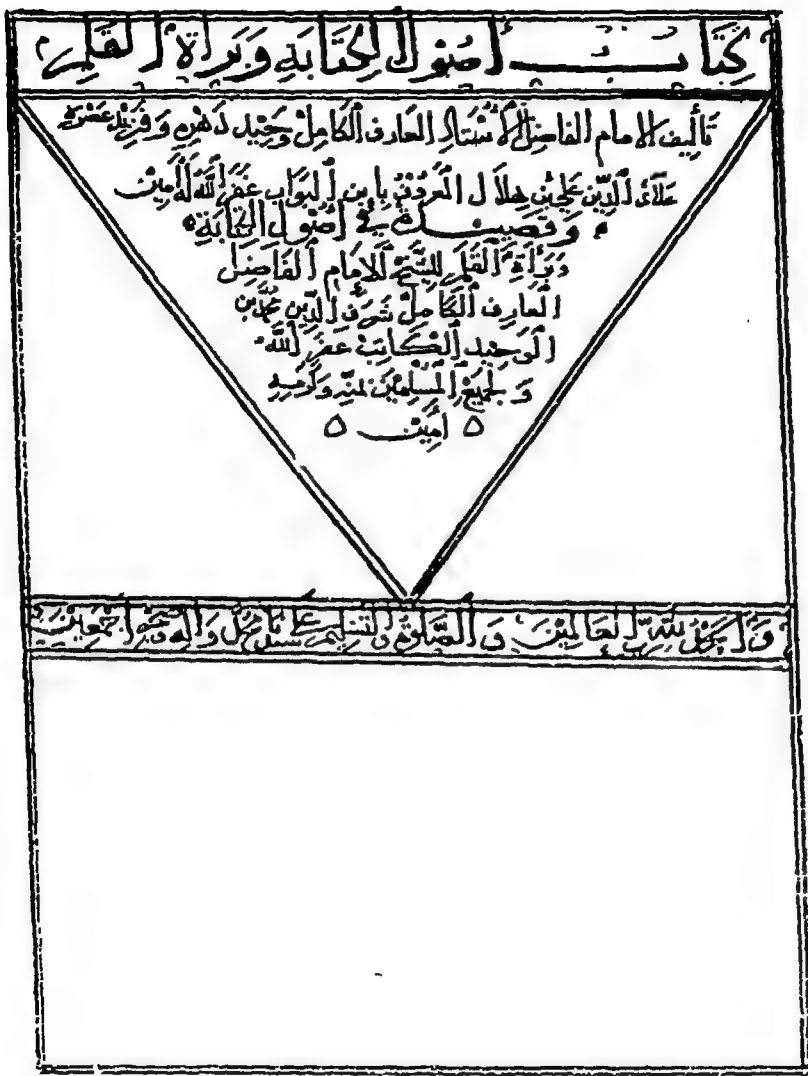 كِتَابُ أُصُولِ الكِتَابَةِ وَبَرَاةِ القَلَمِ
تَأْلِيف الامام الفاضِل الأُسْتَاذ العَارِف الكَامِل وَحِيد دَهْرِهِ وَفَرِيْد عَصْرِهِ
عَلاَء الدِّين عَلي بْن هِلَال المَعرُوف بابن البَوّاب غفَر اللَّه لَهُ آمِين
وَقصِيدة في أُصُول الكِتَابَةِ
وبَرْاَةِ القَلَمِ للشَيْخ الامَام الفَاضِل
العَارِف الكَامِل شَرَف الدِّين مُحَمَّد بْن
الوَحِيد الكَاتِب غفَر اللَّه لَهُ
وَلجَمِيْع المُسْلِمِيْنَ بمَنِّهِ وَكَرَمِهِ
٥ آمِيْن ٥
وَالحَمْدُ لِلَّهِ رَبِّ العَالَمِيْنَ وَالصَّلوةُ وَالتَسْلِيْم عَلَى سَيّدنَا مُحَمَّد وَآلِهِ وَصَحْبِهِ أَجْمَعِيْن